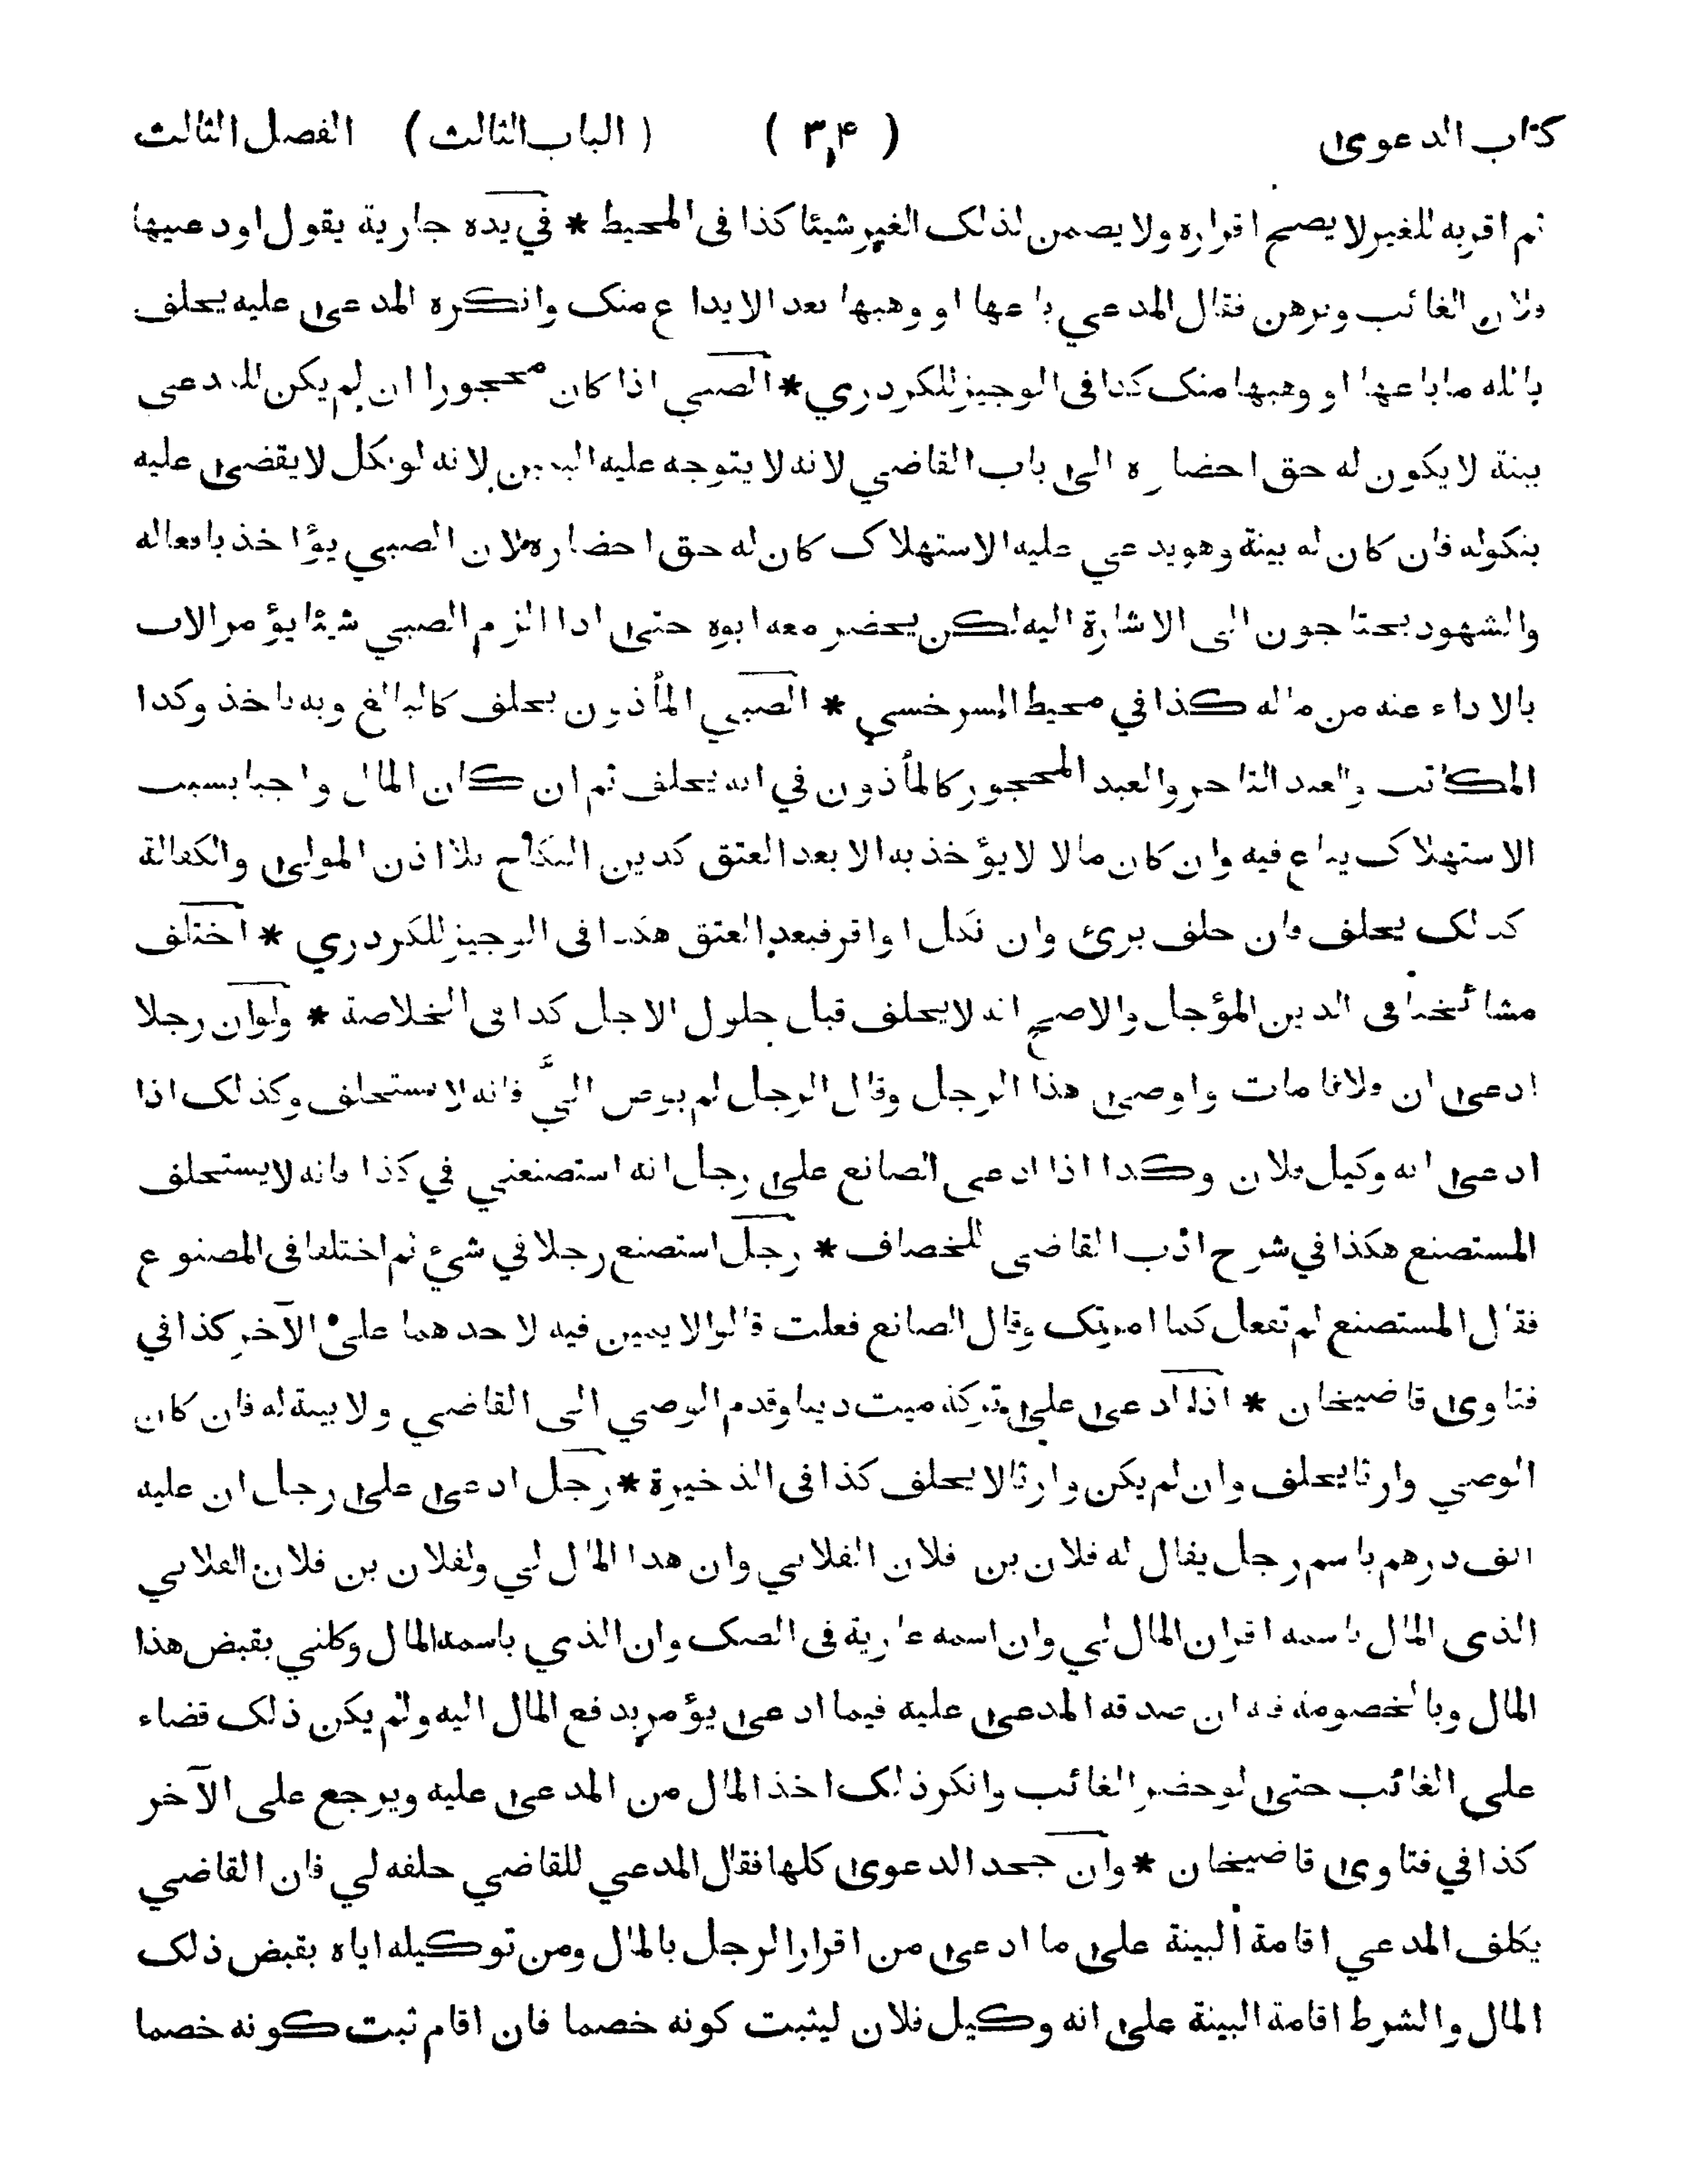 كتاب الدعوى ( ٣٤ ) ( الباب الثالث ) الفصل الثالث
ثم اقر به للغير لا يصح اقراره ولا يضمن لذلك الغير شيئا كذا فى المحيط * في يده جارية يقول اودعنيها
فلان الغائب وبرهن فقال المدعي باعها او وهبها بعد الايداع منك وانكره المدعى عليه يحلف
بالله ما باعها او وهبها منك كذا فى الوجيز للكردري * الصبي اذا كان محجورا ان لم يكن للمدعي
بينة لا يكون له حق احضاره الى باب القاضي لانه لا يتوجه عليه اليمين لانه لو نكل لا يقضى عليه
بنكوله فان كان له بينة وهو يدعي عليه الاستهلاك كان له حق احضاره لان الصبي يؤاخذ بافعاله
والشهود يحتاجون الى الاشارة اليه لكن يحضر معه ابوه حتى اذا الزم الصبي شيئا يؤمر الاب
بالاداء عنه من ماله كذا في محيط السرخسي * الصبي المأذون يحلف كالبالغ وبه ناخذ وكذا
المكاتب والعبد التاجر والعبد المحجور كالمأذون في انه يحلف ثم ان كان المال واجبا بسبب
الاستهلاك يباع فيه وان كان مالا لا يؤخذ به الا بعد العتق كدين النكاح بلا اذن المولى والكفالة
كذلك يحلف فان حلف برئ وان نكل او اقر فبعد العتق هكذا فى الوجيز للكردري * اختلف
مشائخنا فى الدين المؤجل والاصح انه لا يحلف قبل حلول الاجل كذا فى الخلاصة * ولو ان رجلا
ادعى ان فلانا مات واوصى هذا الرجل وقال الرجل لم يوص اليّ فانه لا يستحلف وكذلك اذا
ادعى انه وكيل فلان وكذا اذا ادعى الصانع على رجل انه استصنعني في كذا فانه لا يستحلف
المستصنع هكذا في شرح ادب القاضي للخصاف * رجل استصنع رجلا في شيء ثم اختلفا فى المصنوع
فقال المستصنع لم تفعل كما امرتك وقال الصانع فعلت قالوا لا يمين فيه لاحدهما على الآخر كذا في
فتاوى قاضيخان * اذا ادعى على تركة ميت دينا وقدم الوصي الى القاضي ولا بينة له فان كان
الوصي وارثا يحلف وان لم يكن وارثا لا يحلف كذا فى الذخيرة * رجل ادعى على رجل ان عليه
الف درهم باسم رجل يقال له فلان بن فلان الفلاني وان هذا المال لي ولفلان بن فلان الفلاني
الذى المال باسمه اقر ان المال لي وان اسمه عارية فى الصك وان الذي باسمه المال وكلني بقبض هذا
المال وبالخصومة فيه ان صدقه المدعى عليه فيما ادعى يؤمر بدفع المال اليه ولم يكن ذلك قضاء
على الغائب حتى لو حضر الغائب وانكر ذلك اخذ المال من المدعى عليه ويرجع على الآخر
كذا في فتاوى قاضيخان * وان جحد الدعوى كلها فقال المدعي للقاضي حلفه لي فان القاضي
يكلف المدعي اقامة البينة على ما ادعى من اقرار الرجل بالمال ومن توكيله اياه بقبض ذلك
المال والشرط اقامة البينة على انه وكيل فلان ليثبت كونه خصما فان اقام ثبت كونه خصما